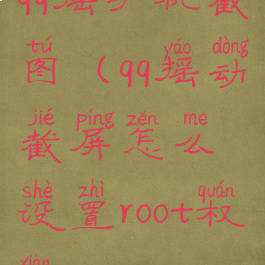 qq摇
截
tú yáo dòng
图（qq摇动
jié píng zěn me
截屏怎么
shè zhì quán
设置root权
xiàn